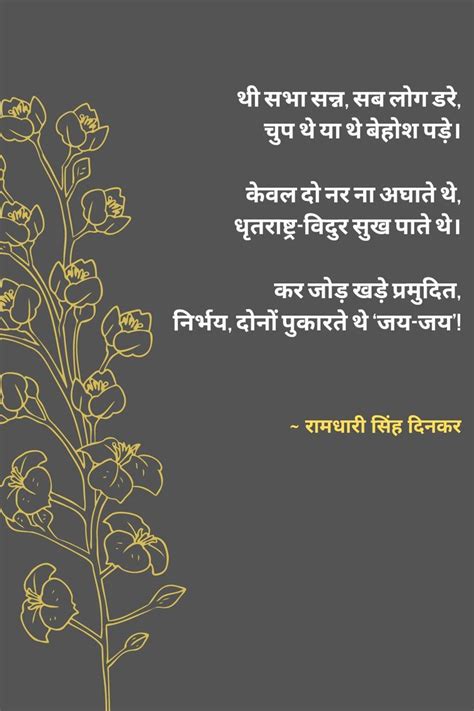 थी सभा सन्न, सब लोग डरे,
चुप थे या थे बेहोश पड़े।
केवल दो नर ना अघाते थे,
धृतराष्ट्र-विदुर सुख पाते थे।
कर जोड़ खड़े प्रमुदित,
निर्भय, दोनों पुकारते थे ‘जय-जय’!
~ रामधारी सिंह दिनकर